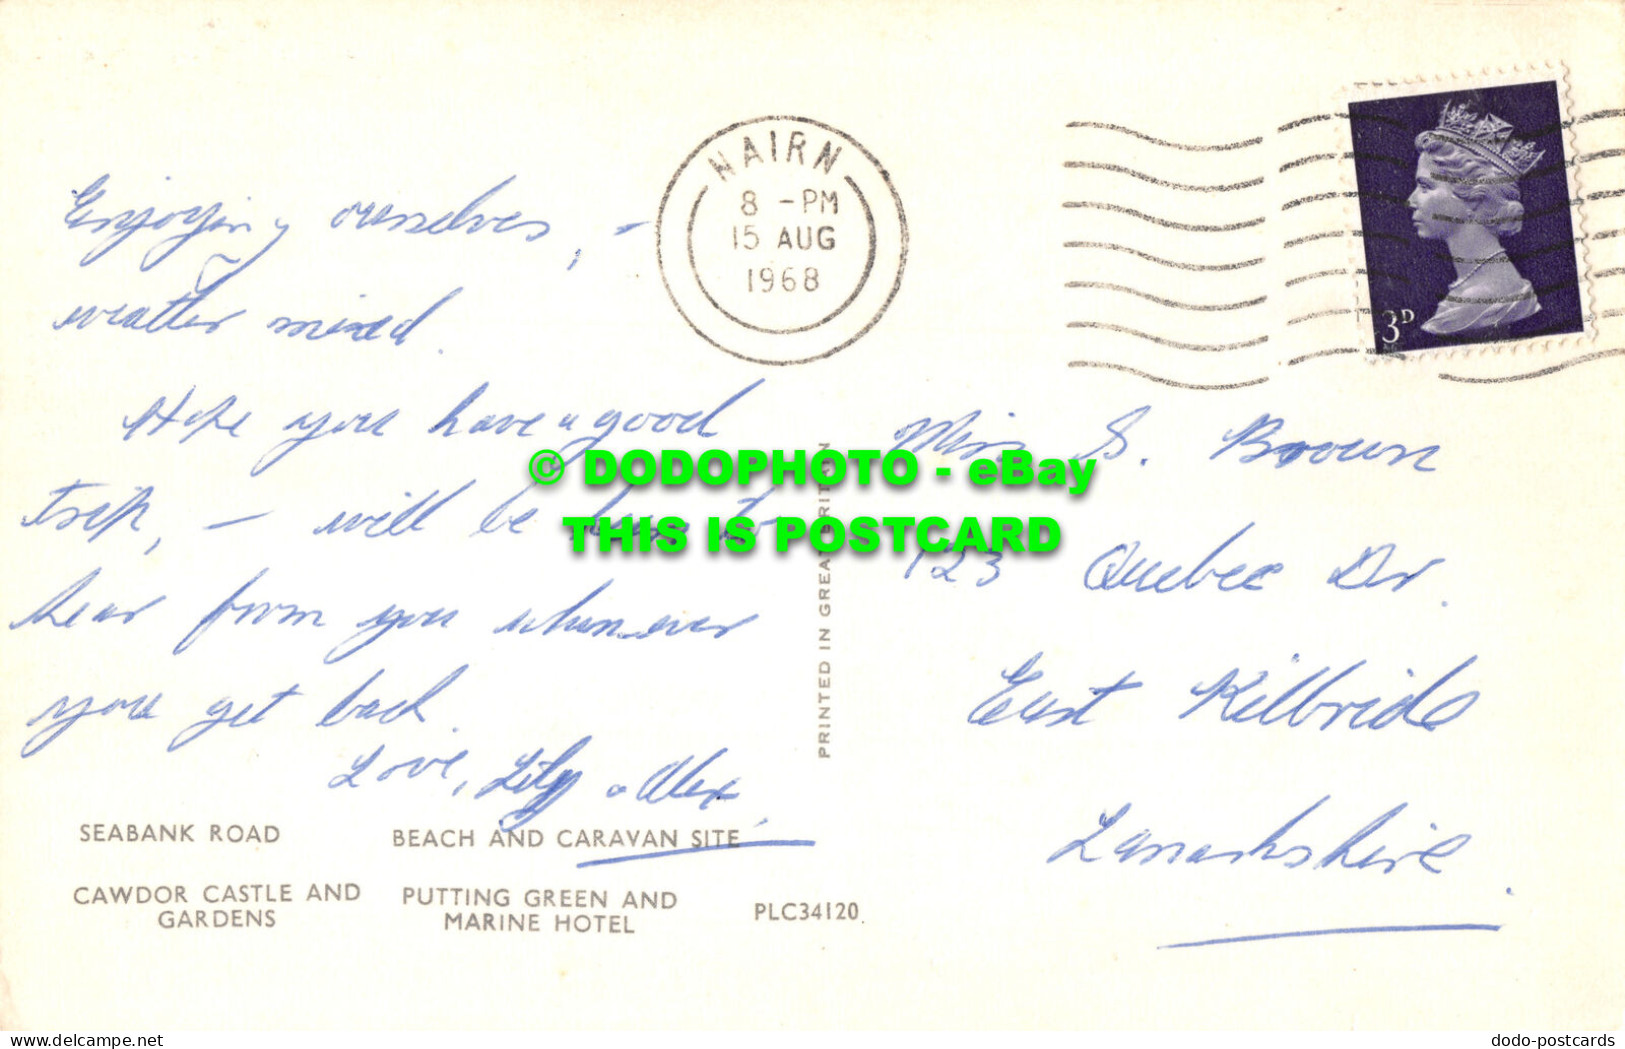 NAIRN
8 - PM
15 AUG
1968
3D
Enjoying ourselves, -
weather mixed.
Hope you have a good
trip, - will be keen to
hear from you whenever
you get back.
Love, Lily & Alex.
Miss S. Brown
123 Quebec Dr.
East Kilbride
Lanarkshire.
© DODOPHOTO - eBay
THIS IS POSTCARD
PRINTED IN GREAT BRITAIN
SEABANK ROAD
BEACH AND CARAVAN SITE
CAWDOR CASTLE AND
GARDENS
PUTTING GREEN AND
MARINE HOTEL
PLC34120.
delcampe.net
dodo-postcards